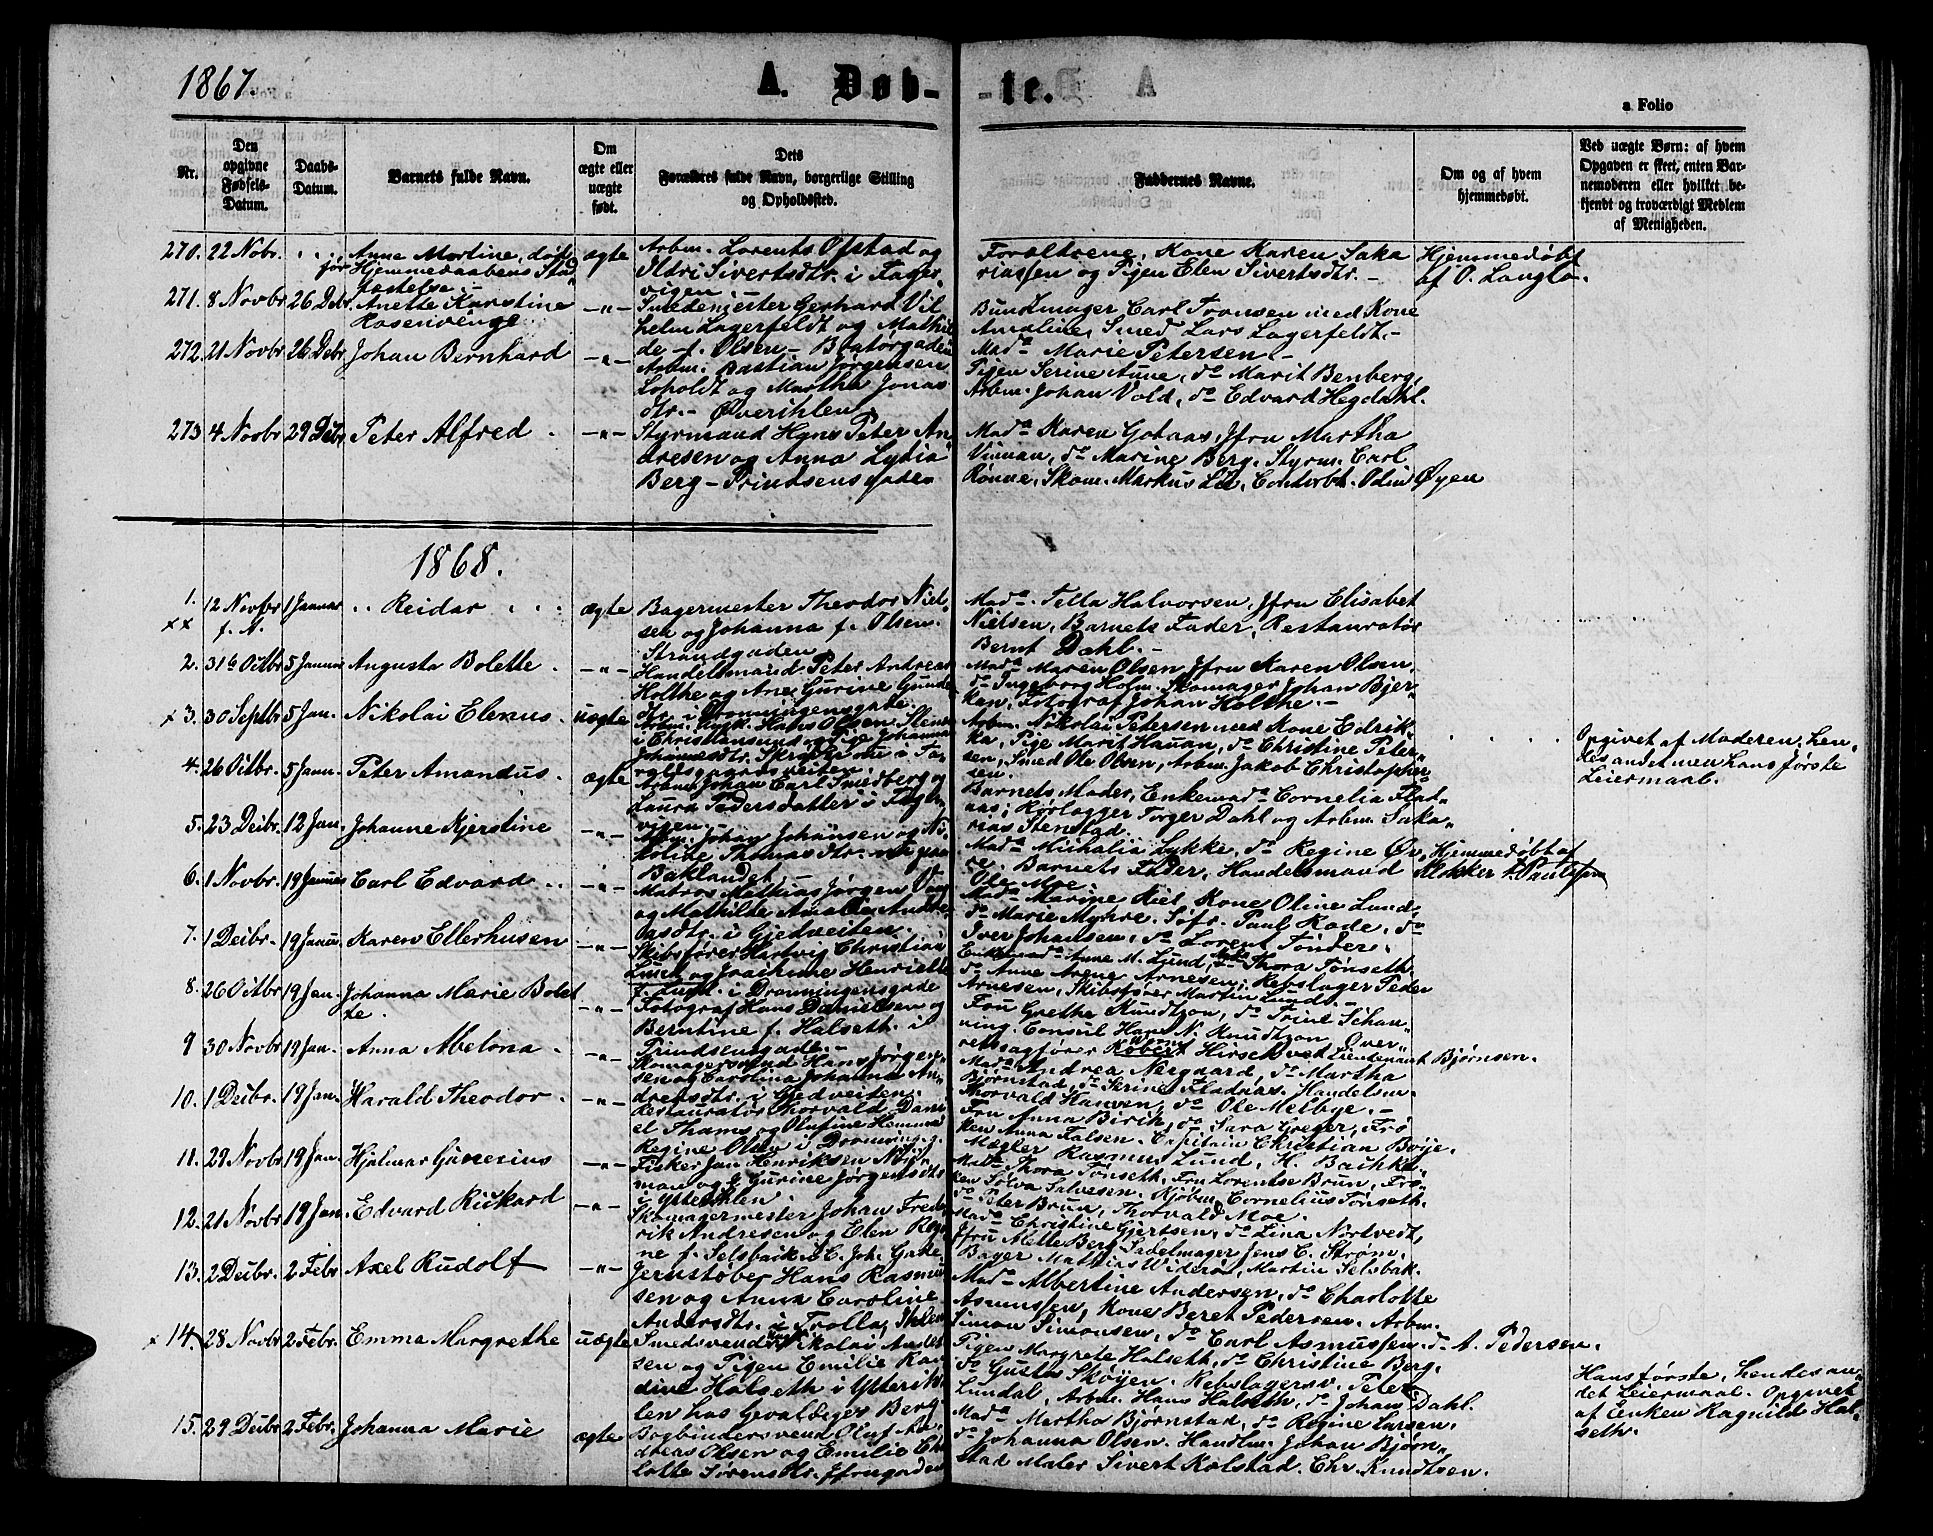 1867.
A. Døb-
-te.
a Folio
Nr.
Den opgivne Fødsels-Datum.
Daabs-Datum.
Barnets fulde Navn.
Om ægte eller uægte født.
Dets Forældres fulde Navn, borgerlige Stilling og Opholdssted.
Faddernes Navne.
Om og af hvem hjemmedøbt.
Ved uægte Børn: af hvem Opgaven er skeet, enten Barnemoderen eller hvilket bekjendt og troværdigt Medlem af Menigheden.
270. 22 Nobr. Anne Martine, død før Hjemmedaabens Stadfæstelse.- ægte
Arbm. Lorents Ofstad og
Ildri Sivertsdtr. i Fager-
vigen
Forældrene, Kone Karen Saka
riassen og Pigen Elen Sivertsdtr. -
Hjemmedøbt
af O. Langlo.
271. 8 Novbr 26 Debr Anette Karstine Rosenvinge -"-
Smedemester Gerhard Vil
helm Lagerfeldt og Mathil
de f. Olsen - Bratørgaden
Bundtmager Carl Tronsen med Kone
Amaline, Smed Lars Lagerfeldt.-
Mada Marie Petersen.-
272. 21 Novbr 26 Debr Johan Bernhard -"-
Arbm. Bastian Jørgensen
Lopoldt og Martha Jonas
dtr.- Øverihlen.
Pigen Serine Aune, do Marit Benberg,
Arbm. Johan Vold, do Edvard Hegdahl.
273 4 Novbr 29 Debr Peter Alfred -"-
Styrmand Hans Peter An
dresen og Anna Lydia
Berg - Prindsensgaden
Mada Karen Gotaas, Jfru Martha
Vinnan, do Marine Berg, Styrm. Carl
Rønne, Skom. Markus Lie, Odin Øyen
1868.
1. 12 Novbr 1 Januar Reidar ægte
f. A.
Bagermester Theodor Niel-
sen og Johanna f. Olsen.
Strandgaden
Mada Tella Halvorsen, Jfru Elisabet
Nielsen, Barnets Fader, Restauratør
Bernt Dahl.-
2. 31te Octbr 5 Januar Augusta Bolette -"-
Handelsmand Peter Andreas
Holthe og Ane Gurine Gunde
dtr. i Dronningensgade.
Mada Maren Olsen, Jfru Karen Olsen,
do Ingeborg Holm, Skomager Johan Bjer-
kan, Fotograf Johan Holthe.-
x 3. 30 Septbr 5 Jan. Nikolai Elenus uægte
Hans Olsen Stene
i Christiansund og Pige Johanna
Johannesdtr.
Arbm. Nikolai Petersen med Kone Edrik-
ka, Pige Marit Hauan, do Christine Peter-
sen, Smed Ole Olsen, Arbm. Jakob Christophers
sen.
Opgivet af Moderen, hen-
des andet men hans første
Leiermaal.
4. 26 Octbr. 5 Janu. Peter Amandus. ægte
Arbm. Johan Carl Smedberg og
Laura Pedersdatter i Fagle-
vigen.-
Barnets Moder, Enkemada Cornelia Flad-
aas, Rørlægger Torger Dahl og Arbm. Saka-
rias Stenstad.
5. 23 Decbr. 12 Jan. Johanne Kjerstine -"-
Arbm. Johan Johansen og Ni-
koline Thomasdtr. paa
Baklandet
Mada Michalia Lykke, do Regine Øv-
re. Barnets Fader, Handelsmand
Ole Moe.
Hjemmedøbt af
Klokker
6. 1 Novbr. 19 Januar Carl Edvard -"-
Matros Mathias Jørgen
og Mathilde Amalie Andre-
asdtr. i Gjedveiten.
Mada Marine Kiel, Kone Oline Lund,
do Marie Myhre. Søfr. Paul Rode, do
Iver Johansen, do Lorent Tønder.
7. 1 Decbr. 19 Januar Karen Ellerhusen -"-
Skibsfører Hartvig Christian
Lund og Joachime Henriette
f. Lund. i Dronningensgade
Enkemada Anne M. Lund, Thora Tønseth,
do Anne Arnesen, Rebslager Peder
Arnesen, Skibsfører Martin Lund.-
8. 26 Octbr 19 Jan. Johanna Marie Bolet
te. -"-
Fotograf Hans Danielsen og
Berntine f. Halseth. i
Prindsensgade.-
Fru Grethe Knudtzon, do Trine Schan-
ning. Consul Hans N. Knudtzon, Over-
retssagfører Robert Hirsch ved Lieutenant Bjørnsen.
9 30 Novbr 19 Jan. Anna Abelona -"-
Skomagersvend Hans Jørgen-
sen og Carolina Johanna An-
dreasdtr. i Gjedveiten.
Mada Andrea Nergaard, do Martha
Bjørnstad, do Serine Fladaas. Handelsm.
Thorvald Hansen, do Ole Melbye.-
10. 1 Decbr. 19 Jan. Harald Theodor -"-
Restauratør Thorvald Dani
el Thams og Olufine Hemma
Regine Olsen i Dronning.g.
Fru Anna Birch, do Sara Greger, Frø
ken Anna Falsen. Capitain Christian Bøje.
Mægler Rasmus Lund, H. Bachke.
11. 29 Novbr 19 Jan. Hjalmar Ganerius -"-
Fisker Jan Henriksen
man og Gurine Jørgensdtr
i Ytterihlen
Mada Thora Tønseth, Fru Lorentse Brun, Frø-
ken Solva Salvesen. Kjøbm. Cornelius Tønseth,
do Peter Brun, Thorvald Moe.
12. 21 Novbr 19 Jan. Edvard Rickard -"-
Skomagermester Johan Fred-
rik Andresen og Elen Regi
ne f. Selsbaik i C. Joh. Gade.
Mada Christine Gjertsen, do Lina Nortvedt,
Jfru Mette Berg, Sadelmager Jens C. Strøm,
Bager Mathias Widerøe, Martin Selsbak.
13. 2 Decbr. 2 Febr Axel Rudolf -"-
Jernstøber Hans Rasmus
sen og Anna Caroline
Andersdtr. i Trolla, Ihlen
Mada Albertine Andersen, do Charlotte
Asmussen, Kone Beret Pedersen, Arbm.
Simon Simonsen, do Carl Asmussen. do A. Pedersen.
x 14. 28 Novbr 2 Febr. Emma Margrethe uægte
Smedsvend Nikolai Andre
sen og Pigen Emilie Kar
dine Halseth i Ytterih-
len hos Gevaldiger Berg
Pigen Margrete Halseth, do Christine Berg,
do Gusta Skøyen. Rebslagersv. Peter
Lundal, Arbm. Hans Halseth, do Johan Dahl.
Hans første, hendes an-
det Leiermaal. Opgivet
af Enken Ragnild Hal-
seth.
15. 29 Decbr 2 Febr. Johanna Marie ægte
Bogbindersvend Oluf An-
dreas Olsen og Emilie Char
lotte Sørensdtr. Jfrugaden
Mada Martha Bjørnstad, do Regine Larsen,
do Johanna Olsen. Handlm. Johan Bjørn-
stad Maler Sivert Kolstad. Chr. Knudtsen.